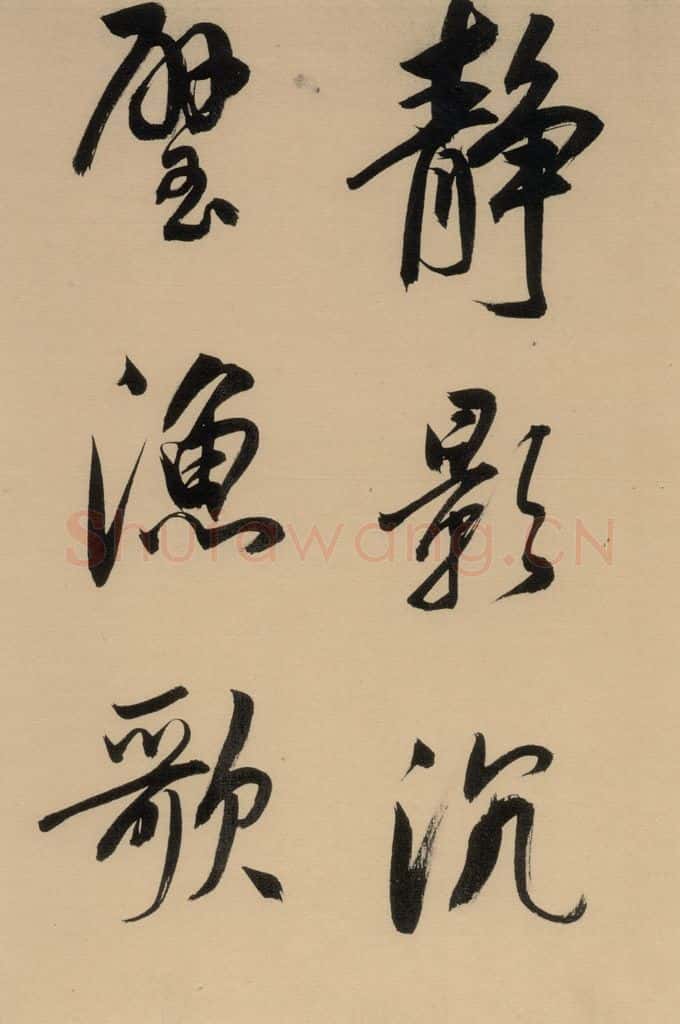 静影沉
璧渔歌
Shufawang.CN